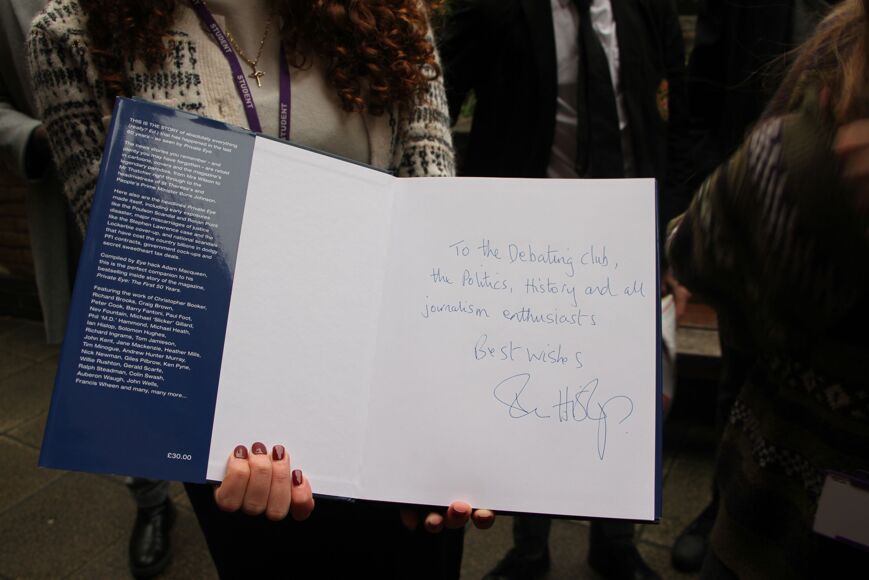 STUDENT
STUDENT
THIS IS THE STORY of absolutely everything
(really? Ed.) that has happened in the last
60 years – as seen by Private Eye.
The news stories you remember – and
plenty you may have forgotten – are retold
in cartoons, covers and the magazine's
legendary parodies, from Mrs Wilson to
Mr Thatcher right through to the
headmistress of St Theresa's and
People's Prime Minister Boris Johnson.
Here also are the headlines Private Eye
made itself, including early exposures
like the Poulson Scandal and
disaster, major miscarriages of justice
like the Stephen Lawrence case and the
Lockerbie cover-up, and national scandals
that have cost the country billions in dodgy
PFI contracts, government cock-ups and
secret sweetheart tax deals.
Compiled by Eye hack Adam Macqueen,
this is the perfect companion to his
bestselling inside story of the magazine,
Private Eye: The First 50 Years.
Featuring the work of Christopher Booker,
Richard Brooks, Craig Brown,
Peter Cook, Barry Fantoni, Paul Foot,
Nev Fountain, Michael 'Slicker' Gillard,
Phil 'M.D.' Hammond, Michael Heath,
Ian Hislop, Solomon Hughes,
Richard Ingrams, Tom Jamieson,
John Kent, Jane Mackenzie, Heather Mills,
Tim Minogue, Andrew Hunter Murray,
Nick Newman, Giles Pilbrow, Ken Pyne,
Willie Rushton, Gerald Scarfe,
Ralph Steadman, Colin Swash,
Auberon Waugh, John Wells,
Francis Wheen and many, many more...
£30.00
To the Debating Club,
the Politics, History and all
journalism enthusiasts
Best wishes
Ian Hislop